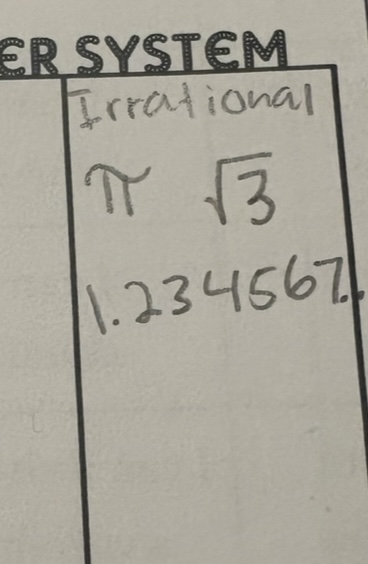 ER SYSTEM
Irrational
π √3
1.234567...